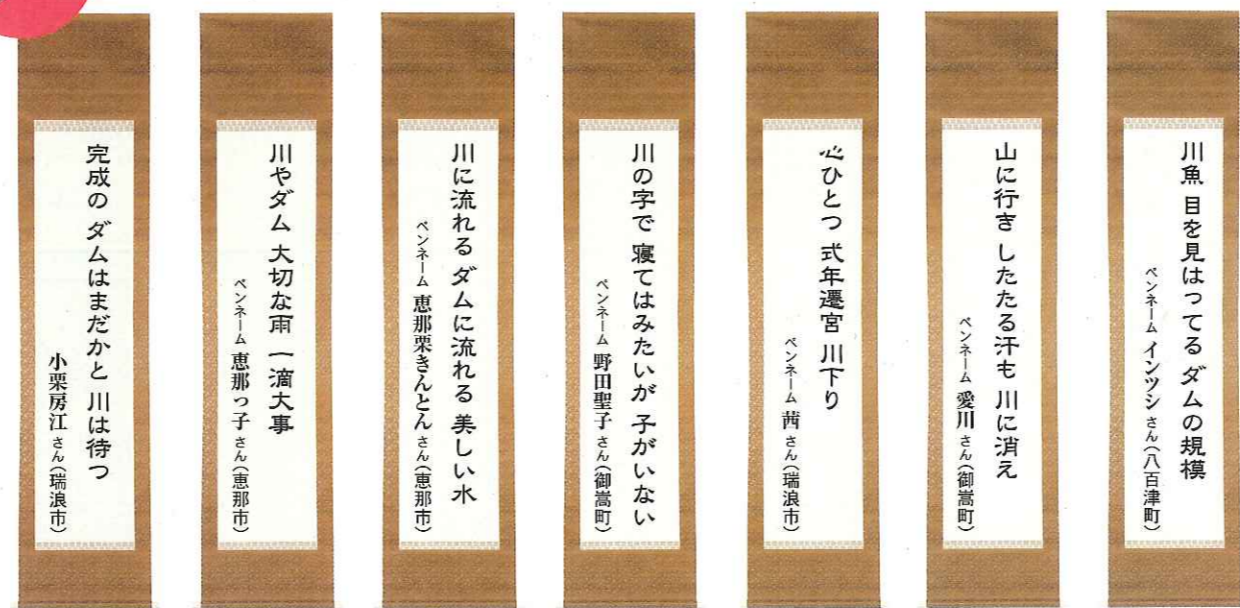 川魚 目を見はってる ダムの規模
ペンネーム インツシ さん(八百津町)
山に行き したたる汗も 川に消え
ペンネーム 愛川 さん(御嵩町)
心ひとつ 式年遷宮 川下り
ペンネーム 茜 さん(瑞浪市)
川の字で 寝てはみたいが 子がいない
ペンネーム 野田聖子 さん(御嵩町)
川に流れる ダムに流れる 美しい水
ペンネーム 恵那栗きんとん さん(恵那市)
川やダム 大切な雨 一滴大事
ペンネーム 恵那っ子 さん(恵那市)
完成の ダムはまだかと 川は待つ
小栗房江 さん(瑞浪市)